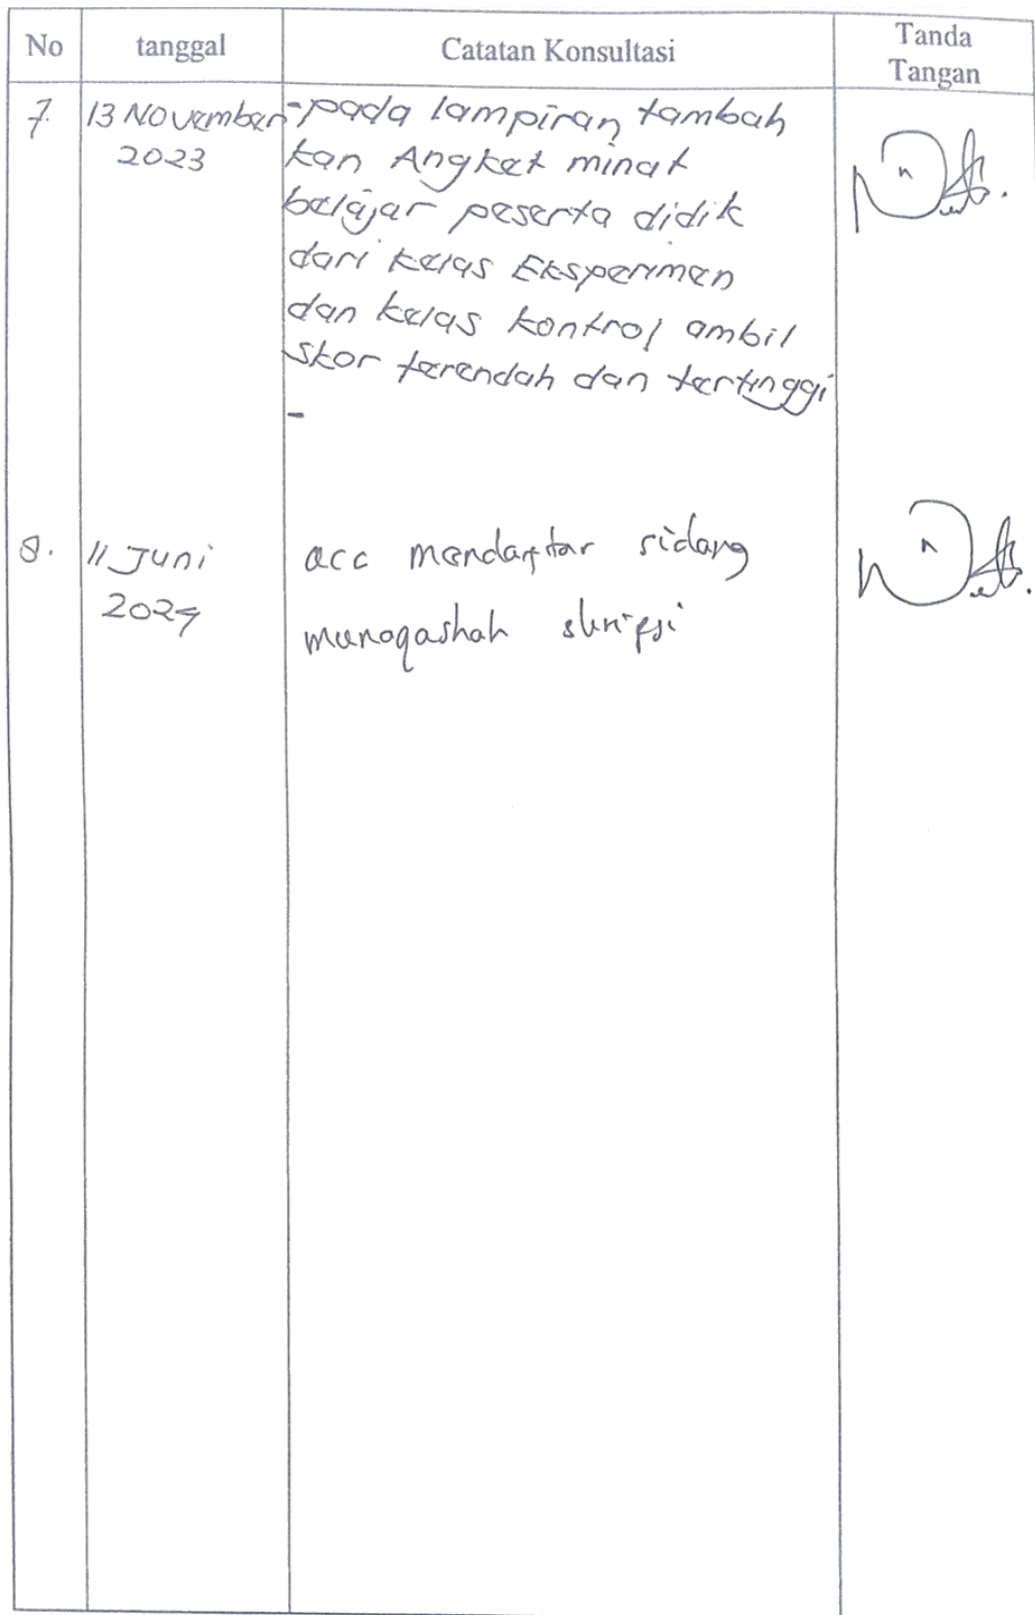 No tanggal Catatan Konsultasi Tanda Tangan
7. 13 November 2023
- pada lampiran tambah
kan Angket minat
belajar peserta didik
dari kelas Eksperimen
dan kelas kontrol ambil
Skor terendah dan tertinggi
-
8. 11 Juni 2024
acc mendaftar sidang
munaqashah skripsi